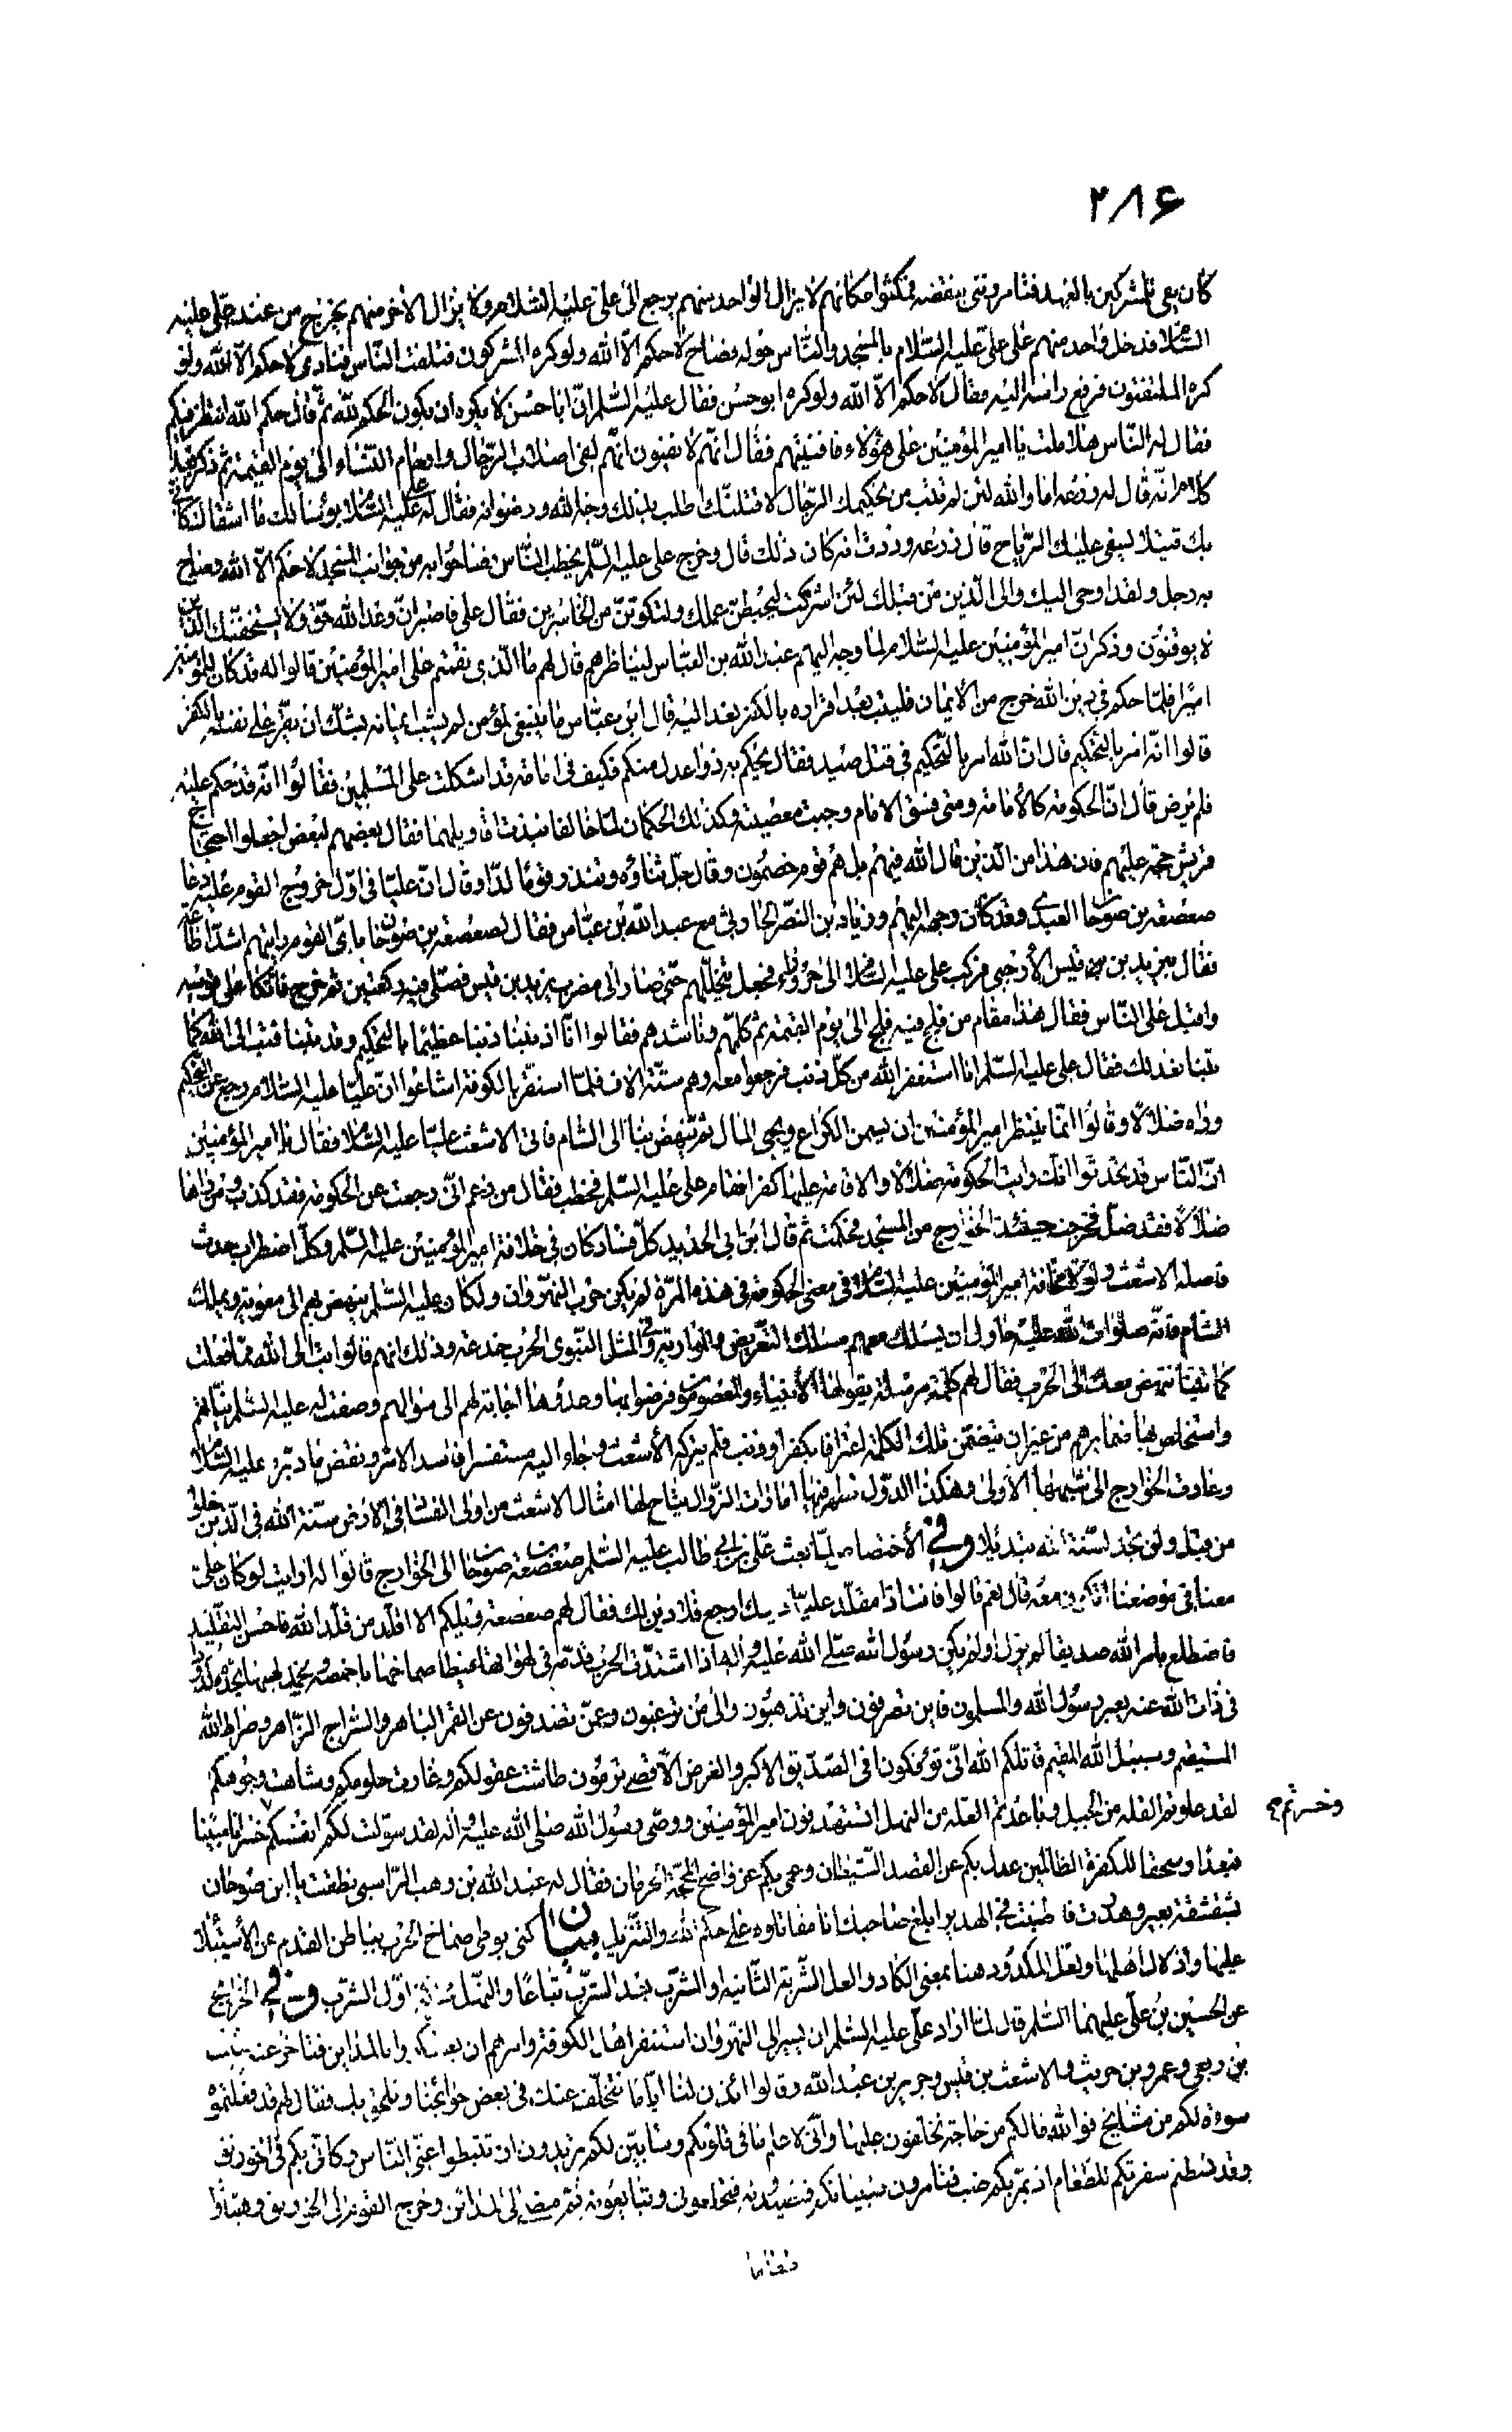 ۲۸۶
كان بقى للمشركين بالعهد فتامروننى بنقضه فمكثوا مكانهم لا يزال الواحد منهم يرجع الى على عليه السلام ولا يزال الاخر منهم يخرج من عند على عليه
السلام فدخل واحد منهم على على عليه السلام بالمسجد والناس حوله فصاح لا حكم الا الله ولو كره المشركون فتلفت الناس فنادى لا حكم الا الله ولو
كره المتلفتون فرفع راسه اليه فقال لا حكم الا الله ولو كره ابو حسن فقال عليه السلم ان ابا حسن لا يكره ان يكون الحكم لله ثم قال حكم الله انتظر فيكم
فقال له الناس هلا ملت يا امير المؤمنين على هؤلاء فافنيتهم فقال انهم لا يفنون انهم لفى اصلاب الرجال وارحام النساء الى يوم القيمة ثم ذكر
كلاما انه قال له زرعه اما والله لئن لم تتب من تحكيمك الرجال لاقتلنك اطلب بذلك وجه الله ورضوانه فقال له على عليه السلام بؤسا لك ما اشقاك كانى
بك قتيلا تسفى عليك الرياح قال زرعه وددت انه كان ذلك قال وخرج على عليه السلم يخطب الناس فصاحوا به من جوانب المسجد لا حكم الا الله وصاح
به رجل ولقد اوحى اليك والى الذين من قبلك لئن اشركت ليحبطن عملك ولتكونن من الخاسرين فقال على فاصبر ان وعد الله حق ولا يستخفنك الذين
لا يوقنون وذكر ان امير المؤمنين عليه السلام لما وجه اليهم عبد الله بن العباس ليناظرهم قال لهم ما الذى نقمتم على امير المؤمنين قالوا له قد كان للمؤمنين
اميرا فلما حكم فى دين الله خرج من الايمان فليتب بعد اقراره بالكفر نعد اليه قال ابن عباس ما ينبغى لمؤمن لم يشب ايمانه بشك ان يقر على نفسه بالكفر
قالوا انه امر بالتحكيم قال ان الله امر بالتحكيم فى قتل صيد فقال يحكم به ذوا عدل منكم فكيف فى امامة قد اشكلت على المسلمين فقالوا انه قد حكم عليه
فلم يرض قال ان الحكومة كالامامة ومتى فسق الامام وجبت معصيته وكذلك الحكمان لما خالفا نبذت اقاويلهما فقال بعضهم لبعض اجعلوا احتجاج
قريش حجة عليهم فان هذا من الذين قال الله فيهم بل هم قوم خصمون وقال جل ثناؤه وتنذر قوما لدا وقال ان عليا فى اول خروج القوم عليه دعا
صعصعة بن صوحان العبدى وقد كان وجهه اليهم وزياد بن النضر الحارثى مع عبد الله بن عباس فقال لصعصعة بن صوحان باى القوم رايتهم اشد اطاعة
فقال بيزيد بن قيس الارحبى فركب على عليه السلام الى حروراء فجعل يتخللهم حتى صار الى مضرب يزيد بن قيس فصلى فيه ركعتين ثم خرج فاتكأ على قوسه
واقبل على الناس فقال هذا مقام من فلج فيه فلج الى يوم القيمة ثم كلمهم وناشدهم فقالوا انا اذنبنا ذنبا عظيما بالتحكيم وقد تبنا فتب الى الله كما
تبنا نعد لك فقال على عليه السلم انا استغفر الله من كل ذنب فرجعوا معه وهم ستة الاف فلما استقر بالكوفة اشاعوا ان عليا عليه السلام رجع عن التحكيم
وراه ضلالا وقالوا انما ينتظر امير المؤمنين ان يسمن الكراع ويجبى المال ثم ينهض بنا الى الشام فاتى الاشعث عليا عليه السلام فقال يا امير المؤمنين
ان الناس قد تحدثوا انك رايت الحكومة ضلالا والاقامة عليها كفرا فقام على عليه السلم فخطب فقال من زعم انى رجعت عن الحكومة فقد كذب ومن راها
ضلالا فقد ضل فخرجت حينئذ الخوارج من المسجد فحكمت ثم قال ابن ابى الحديد كل فساد كان فى خلافة امير المؤمنين عليه السلم وكل اضطراب حدث
فاصله الاشعث ولولا محاقته امير المؤمنين عليه السلام فى معنى الحكومة فى هذه المرة لم يكن حرب النهروان ولكان عليه السلم ينهض بهم الى معوية ويملك
الشام فانه صلوات الله عليه حاول ان يسلك معهم مسلك التعريض والمواربة وفى المثل النبوى الحرب خدعة وذلك انهم قالوا له تب الى الله مما فعلت
كما تبنا ننهض معك الى الحرب فقال لهم كلمة مرسلة يقولها الانبياء والمعصومون فرضوا بها وعدوها اجابة لهم الى سؤالهم وصفت له عليه السلم نياتهم
واستخلص بها ضمائرهم من غير ان يتضمن تلك الكلمة اعترافا بكفر او ذنب فلم يتركه الاشعث وجاء اليه مستفسرا فافسد الامر ونقض ما دبره عليه السلام
وعاودت الخوارج الى شبهتها الاولى وهكذا الدول تظهر فيها امارات الزوال يتاح لها امثال الاشعث من اولى الفساد فى الارض سنة الله فى الذين خلوا
من قبل ولن تجد لسنة الله تبديلا وفى الاختصاص لما بعث على بن ابى طالب عليه السلم صعصعة بن صوحان الى الخوارج قالوا له ارايت لو كان على
معنا فى موضعنا اتكون معه قال نعم قالوا فانت اذا مقلد عليا دينك ارجع فلا دين لك فقال لهم صعصعة ويلكم الا اقلد من قلد الله فاحسن التقليد
فاضطلع بامر الله صديقا لم يزل او لم يكن رسول الله صلى الله عليه واله اذا اشتدت الحرب قدمه فى لهواتها فيطأ صماخها باخمصه ويخمد لهبها بحده
فى ذات الله عنه يعبر رسول الله والمسلمون فاين تصرفون واين تذهبون والى من ترغبون وعمن تصدفون عن القمر الباهر والسراج الزاهر وصراط الله
المستقيم وسبيل الله المقيم قاتلكم الله انى تؤفكون افى الصديق الاكبر والغرض الاقصى ترمون طاشت عقولكم وغارت حلومكم وشاهت وجوهكم
لقد علوتم القلة من الجبل وباعدتم العلة من النهل اتستهدفون امير المؤمنين ووصى رسول الله صلى الله عليه واله لقد سولت لكم انفسكم خسرانا مبينا
وخسرتم صح
فبعدا وسحقا للكفرة الظالمين عدل بكم عن القصد الشيطان وعمى بكم عن واضح المحجة الحرمان فقال له عبد الله بن وهب الراسبى نطقت يا ابن صوحان
بشقشقة بعير وهدرت فاطنبت فى الهدير ابلغ صاحبك انا مقاتلوه على حكم الله والتنزيل بيان كنى بوطى صماخ الحرب بباطن القدم عن الاستيلاء
عليها واذلال اهلها ولعل المكدود هنا بمعنى الكاد والعل الشربة الثانية او الشرب بعد الشرب تباعا والنهل اول الشرب وفى الخرايج
عن الحسين بن على عليهما السلم قال لما اراد على عليه السلم ان يسير الى النهروان استنفر اهل الكوفة وامرهم ان يعسكروا بالمداين فتاخر عنه شبث
بن ربعى وعمرو بن حريث والاشعث بن قيس وجرير بن عبد الله وقالوا ائذن لنا اياما نتخلف عنك فى بعض حوائجنا ونلحق بك فقال لهم قد فعلتموه
سوءة لكم من مشايخ فوالله مالكم من حاجة تخلفون عليها وانى لاعلم ما فى قلوبكم وسابين لكم تريدون ان تثبطوا عنى الناس وكانى بكم فى الخورنق
وقد بسطتم سفرتكم للطعام اذ يمر بكم ضب فتامرون صبيانكم فيصيدونه فتخلعونى وتبايعونه ثم مضى الى المداين وخرج القوم الى الخورنق وهياوا
طعاما